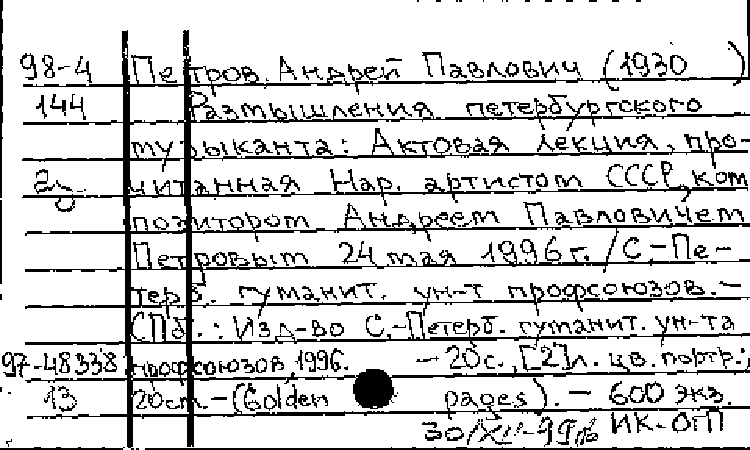 98-4 Петров, Андрей Павлович (1930 )
144 Размышления петербургского
музыканта: Актовая лекция, про-
читанная Нар. артистом СССР, ком
позитором Андреем Павловичем
Петровым 24 мая 1996 г. / С.-Пе-
терб. гуманит. ун-т профсоюзов. -
СПб. : Изд-во С.-Петерб. гуманит. ун-та
97-48338 профсоюзов, 1996. - 20 с., [2] л. цв. портр.;
13 20 см. - (Golden pages). - 600 экз.
30/XII-99 ИК-ОГП